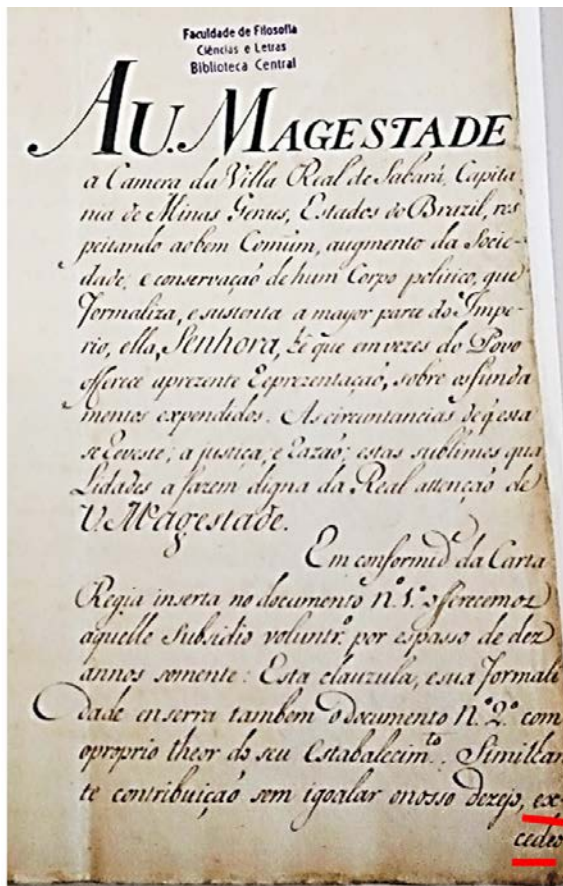 Faculdade de Filosofia
Ciências e Letras
Biblioteca Central
A U. MAGESTADE
a Camera da Villa Real de Sabará, Capita
nia de Minas Geraes, Estados do Brazil, res
peitando ao bem Comum, augmento da Socie-
dade, e conservaçaõ de hum Corpo politico, que
formaliza, e sustenta a mayor parte do Impe-
rio, ella, Senhora, hé que em vezes do Povo
offerece aprezente Reprezentaçaõ, sobre os funda
mentos expendidos. As circuntancias de q' esta
se Reveste; a justiça, e Razaõ; estas sublimes qua
Lidades a fazem digna da Real attençaõ de
V. Magestade.
Em conformid.e da Carta
Regia inserta no documento N.º 1.º offerecemoz
aquelle Subsidio voluntr.º por espasso de dez
annos somente: Esta clauzula, e sua formali
dade enserra tambem o documento N.º 2.º com
o proprio theor do seu Estabalecim.to. Similhan
te contribuiçaõ sem igoalar o nosso dezejo, ex-
cedeo